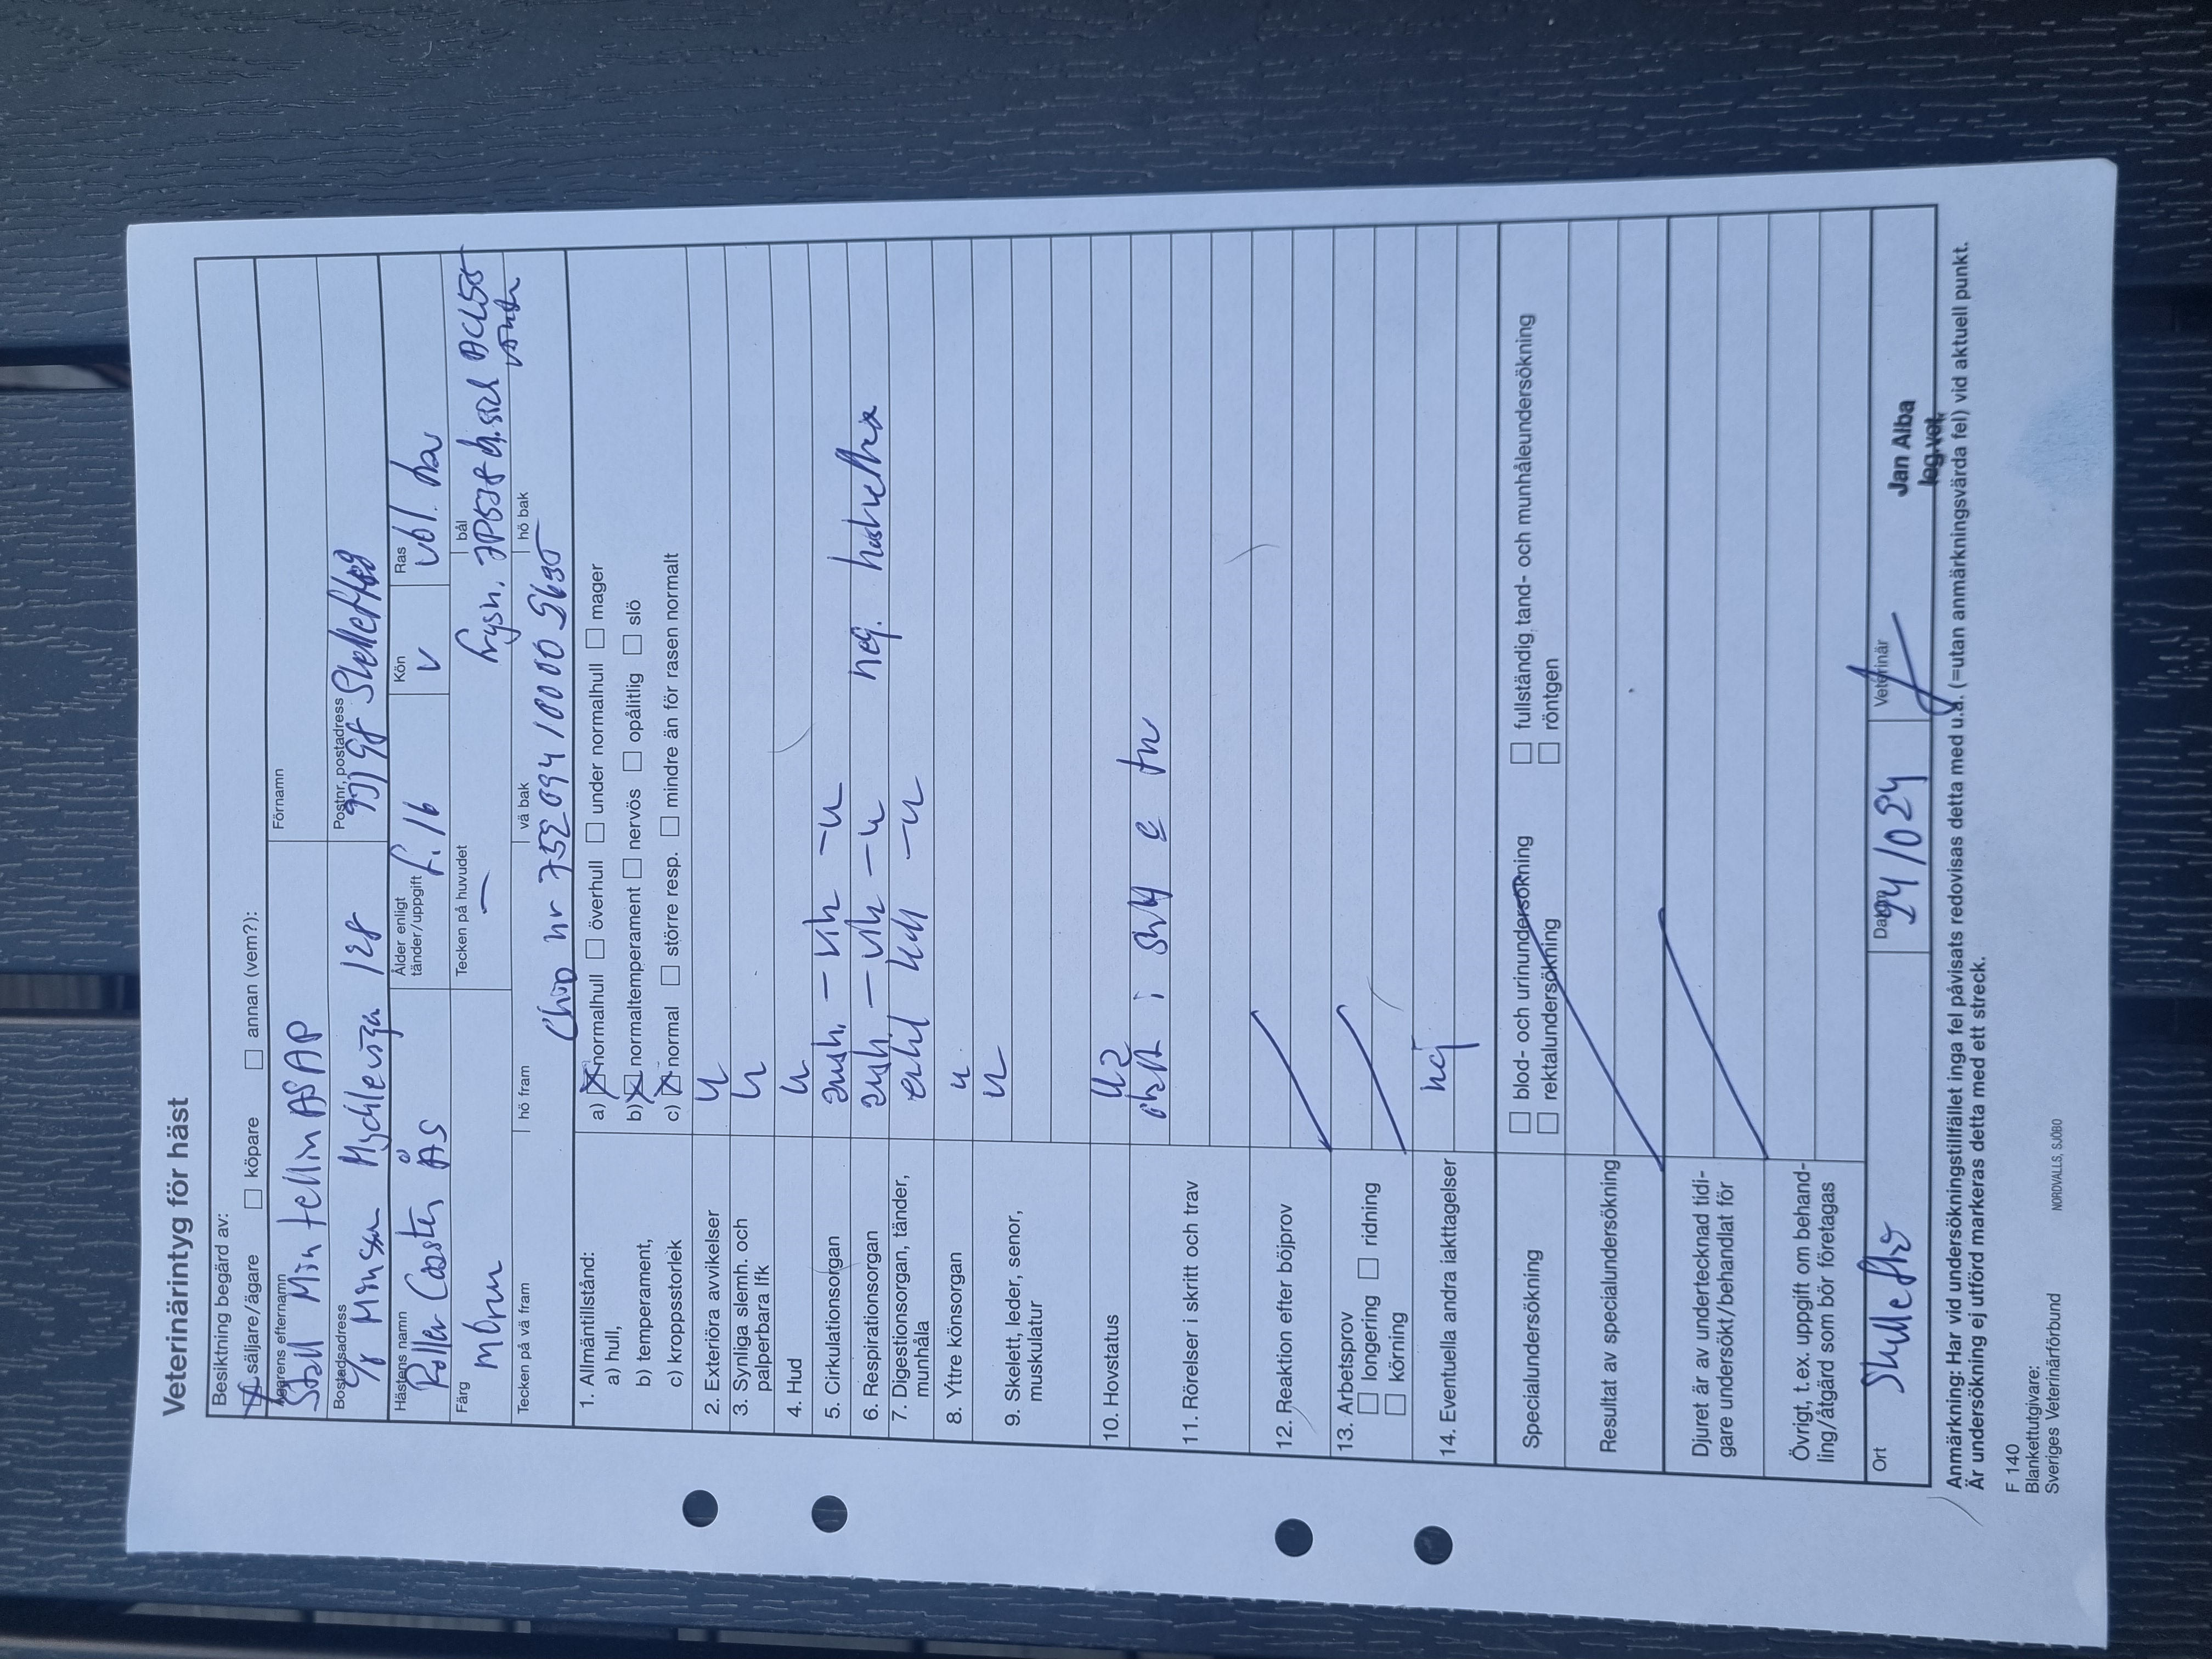 Veterinärintyg för häst
Besiktning begärd av:
säljare/ägare köpare annan (vem?):
Ägarens efternamn Förnamn
Stall Mintellin ASAP
Bostadsadress Postnr, postadress
128 Skellefteå
Hästens namn Ålder enligt tänder/uppgift Kön Ras
Roller Coaster ÅS f. 16 V vbl. trav
Färg Tecken på huvudet bål
mbrun –
Tecken på vä fram hö fram vä bak hö bak
Chip nr 752094100005690
1. Allmäntillstånd:
a) hull, a) normalhull överhull under normalhull mager
b) temperament, b) normaltemperament nervös opålitlig slö
c) kroppsstorlek c) normal större resp. mindre än för rasen normalt
2. Exteriöra avvikelser u
3. Synliga slemh. och palperbara lfk u
4. Hud u
5. Cirkulationsorgan ausk. – vila – u
6. Respirationsorgan ausk. – vila – u neg.
7. Digestionsorgan, tänder, munhåla – u
8. Yttre könsorgan u
9. Skelett, leder, senor, muskulatur u
10. Hovstatus
11. Rörelser i skritt och trav
12. Reaktion efter böjprov
13. Arbetsprov
longering ridning
körning
14. Eventuella andra iakttagelser nej
Specialundersökning blod- och urinundersökning fullständig tand- och munhåleundersökning
rektalundersökning röntgen
Resultat av specialundersökning
Djuret är av undertecknad tidi-
gare undersökt/behandlat för
Övrigt, t.ex. uppgift om behand-
ling/åtgärd som bör företagas
Ort Datum Veterinär
Jan Alba
leg.vet.
Anmärkning: Har vid undersökningstillfället inga fel påvisats redovisas detta med u.a. (=utan anmärkningsvärda fel) vid aktuell punkt.
Är undersökning ej utförd markeras detta med ett streck.
F 140
Blankettutgivare:
Sveriges Veterinärförbund NORDVALLS, SJÖBO